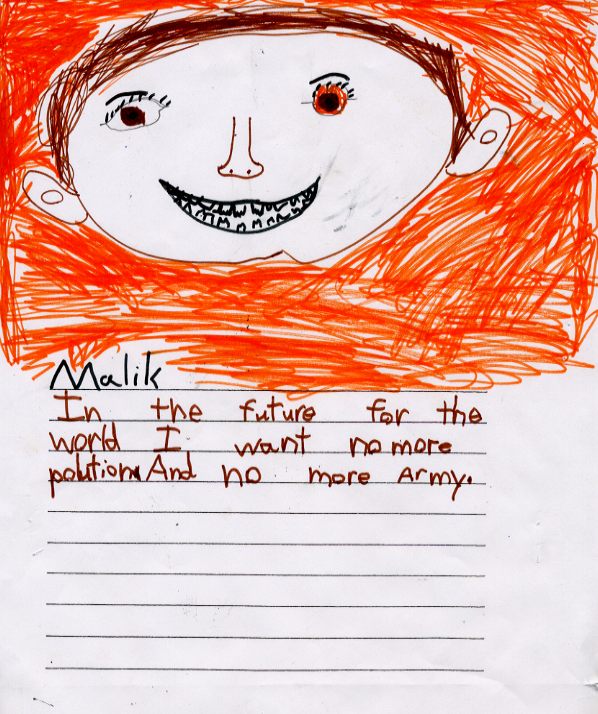 Malik
In the future for the
world I want no more
polution. And no more Army.